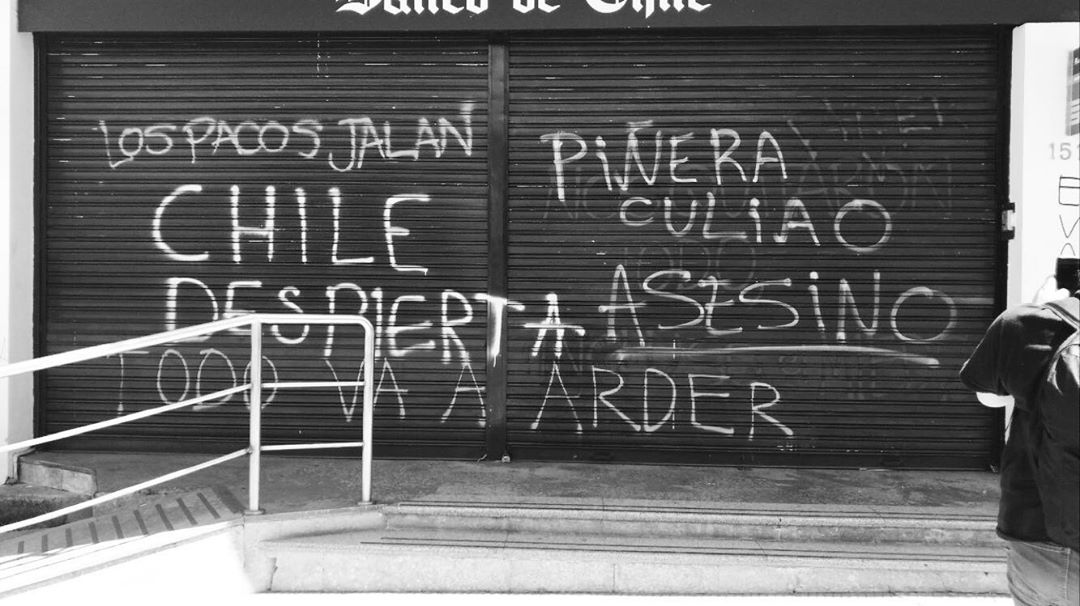 Banco de Chile
LOS PACOS JALAN
CHILE
DESPIERTA
TODO VA A ARDER
PIÑERA
CULIAO
ASESINO
151